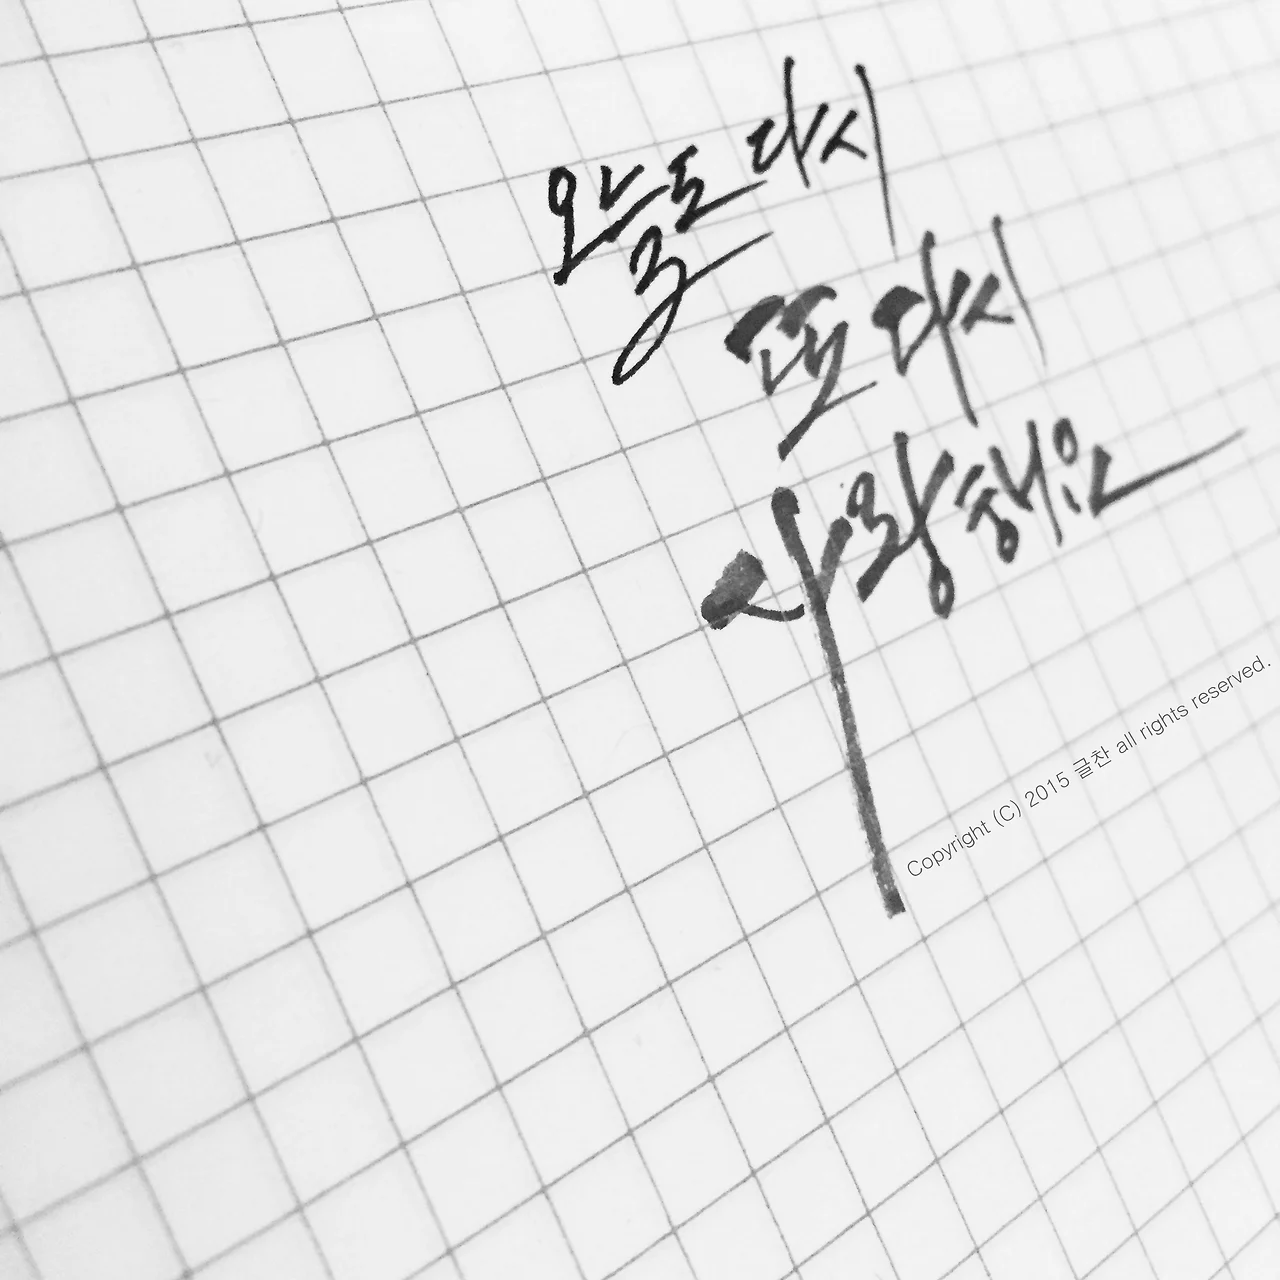 오늘도 다시
또 다시
사랑해요
Copyright (C) 2015 글찬 all rights reserved.